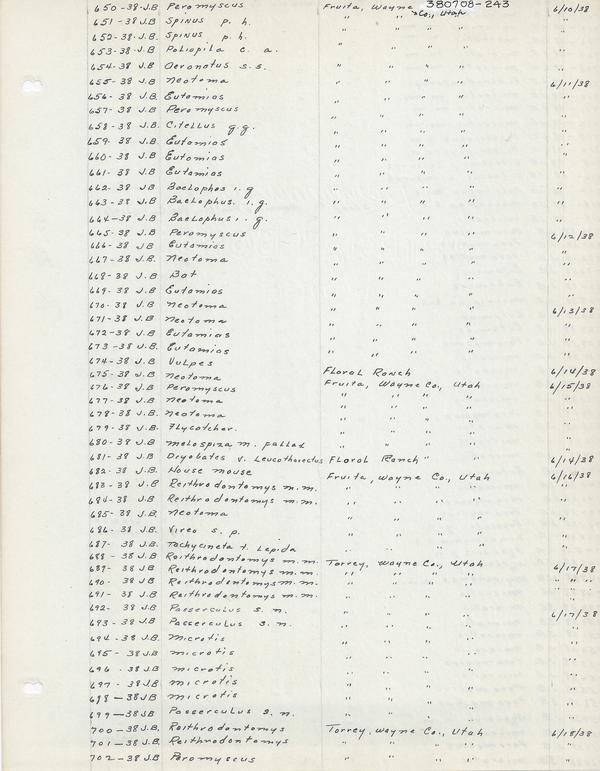 380708-243
650-38-J.B Peromyscus Fruita, Wayne Co., Utah 6/10/38
651-38 J.B Spinus p. h. " " " " "
652-38-J.B. Spinus p. h. " " " " "
653-38-J.B Poliopila c. a. " " " " "
654-38 J.B Oeronatus s.s. " " " " "
655-38 J.B Neotoma " " " " 6/11/38
656-38 J.B Eutamias " " " " "
657-38 J.B Peromyscus " " " " "
658-38 J.B. Citellus g.g. " " " " "
659-38 J.B. Eutamias " " " " "
660-38 J.B. Eutamias " " " " "
661-38 J.B. Eutamias " " " " "
662-38 JB Baelophos i. g " " " " "
663-38 J.B. Baelophus. i. g. " " " " "
664-38 J.B. Baelophus i. g. " " " " "
665-38 J.B. Peromyscus " " " " 6/12/38
666-38 JB Eutamias " " " " "
667-38 J.B. Neotoma " " " " "
668-38 J.B Bat " " " " "
669-38 J.B Eutamias " " " " "
670-38 J.B Neotoma " " " " 6/13/38
671-38 J.B Neotoma " " " " "
672-38 J.B Eutamias " " " " "
673-38 J.B. Eutamias " " " " "
674-38 J.B Vulpes
675-38 J.B Neotoma Floral Ranch 6/14/38
676-38 J.B Peromyscus Fruita, Wayne Co., Utah 6/15/38
677-38 J.B Neotoma " " " " "
678-38 J.B. Neotoma " " " " "
679-38 J.B. Flycatcher. " " " " "
680-38 J.B Melospiza m. fallax " " " " "
681-38 J.B Dryobates v. Leucothorectus Floral Ranch " 6/14/38
682-38 J.B. House mouse Fruita, Wayne Co., Utah 6/16/38
683-38 J.B Reithrodontomys m.m. " " " " "
684-38 J.B Reithrodontomys m.m. " " " " "
685-38 J.B. Neotoma " " " " "
686-38 J.B. Vireo s. p. " " " " "
687-38 J.B. Tachycineta t. Lepida " " " " "
688-38 J.B Reithrodontomys m.m. Torrey, Wayne Co., Utah 6/17/38
689-38 J.B Reithrodontomys m.m. " " " " " " "
690-38 J.B Reithrodontomys m.m. " " " " " " "
691-38 J.B Reithrodontomys m.m. " " " " "
692-38 J.B Passerculus s.n. " " " " 6/17/38
693-38 J.B. Passerculus s.n. " " " " "
694-38 J.B. Microtis " " " " "
695-38 J.B Microtis " " " " "
696-38 J.B Microtis " " " " "
697-38 J.B Microtis " " " " "
698-38 J.B Microtis " " " " "
699-38 JB Passerculus s.n. " " " " "
700-38 J.B. Reithrodontomys Torrey, Wayne Co., Utah 6/18/38
701-38 J.B. Reithrodontomys " " " " "
702-38 J.B Peromyscus " " " " "